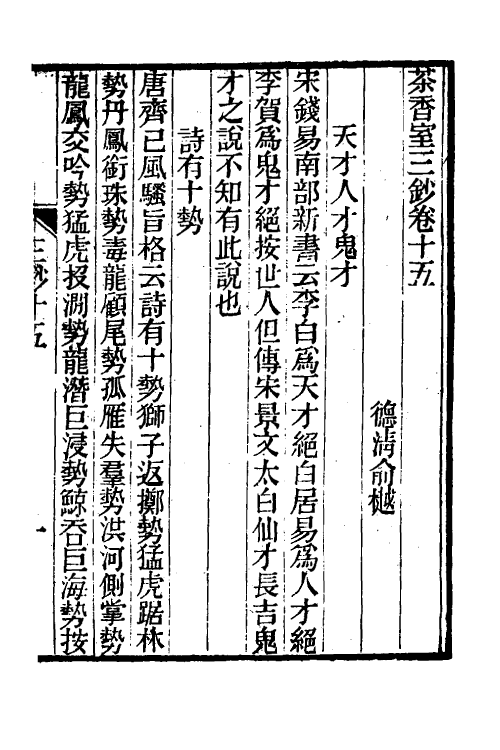 茶香室三鈔卷十五
德淸俞樾
天才人才鬼才
宋錢易南部新書云李白爲天才絕白居易爲人才絕
李賀爲鬼才絕按世人但傳宋景文太白仙才長吉鬼
才之說不知有此說也
詩有十勢
唐齊已風騷旨格云詩有十勢獅子返擲勢猛虎踞林
勢丹鳳銜珠勢毒龍顧尾勢孤雁失羣勢洪河側掌勢
龍鳳交吟勢猛虎投澗勢龍潛巨浸勢鯨吞巨海勢按
三鈔十五
一